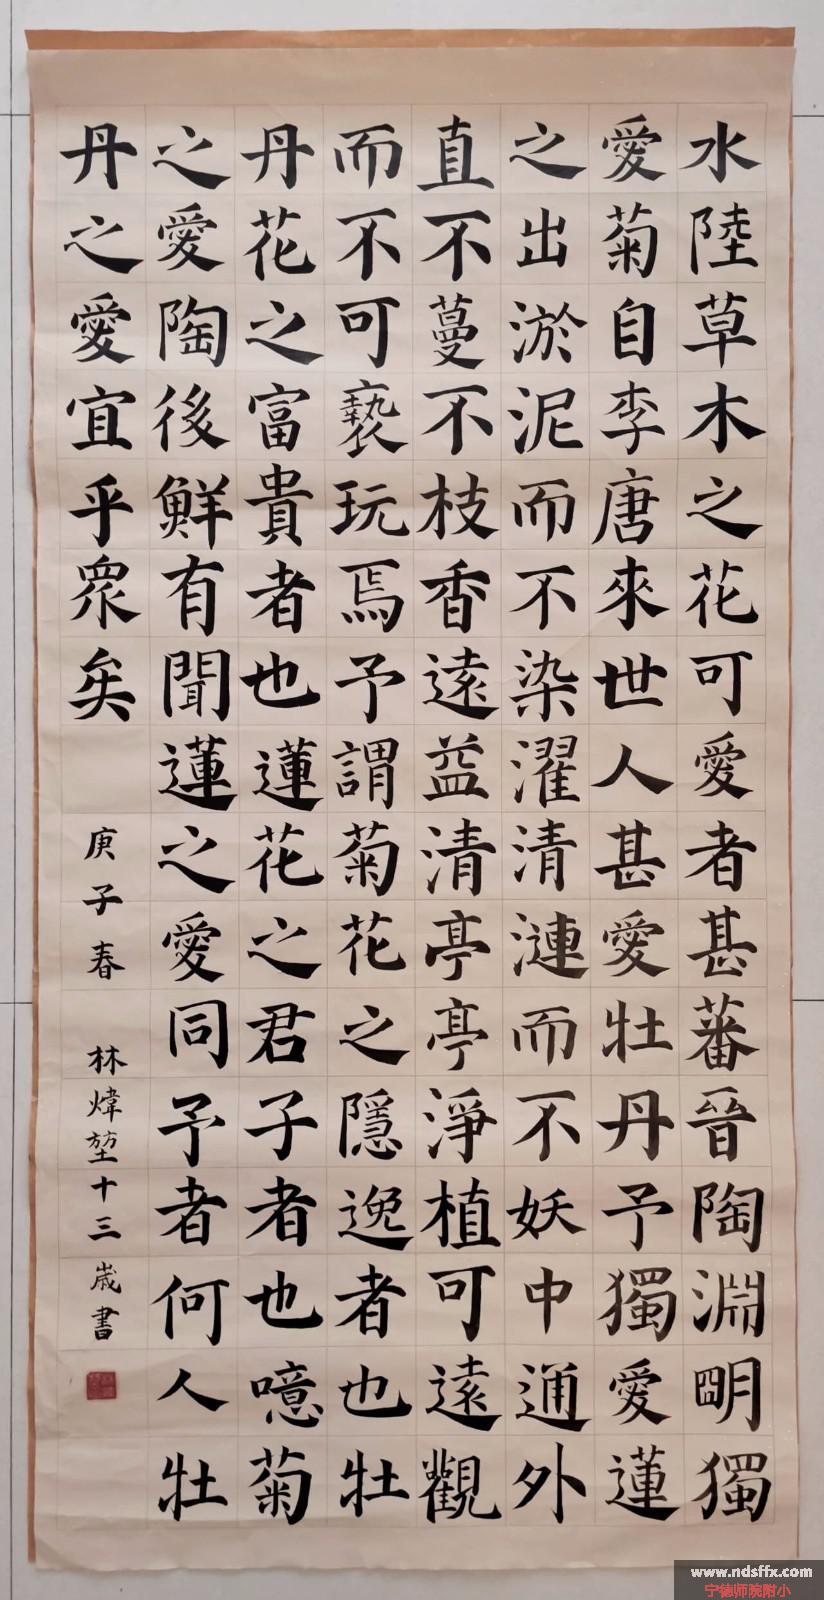 水陸草木之花可愛者甚蕃晉陶淵明獨
愛菊自李唐來世人甚愛牡丹予獨愛蓮
之出淤泥而不染濯清漣而不妖中通外
直不蔓不枝香遠益清亭亭淨植可遠觀
而不可褻玩焉予謂菊花之隱逸者也牡
丹花之富貴者也蓮花之君子者也噫菊
之愛陶後鮮有聞蓮之愛同予者何人牡
丹之愛宜乎眾矣
庚子春 林煒堃十三歲書
www.ndsffx.com
宁德师院附小